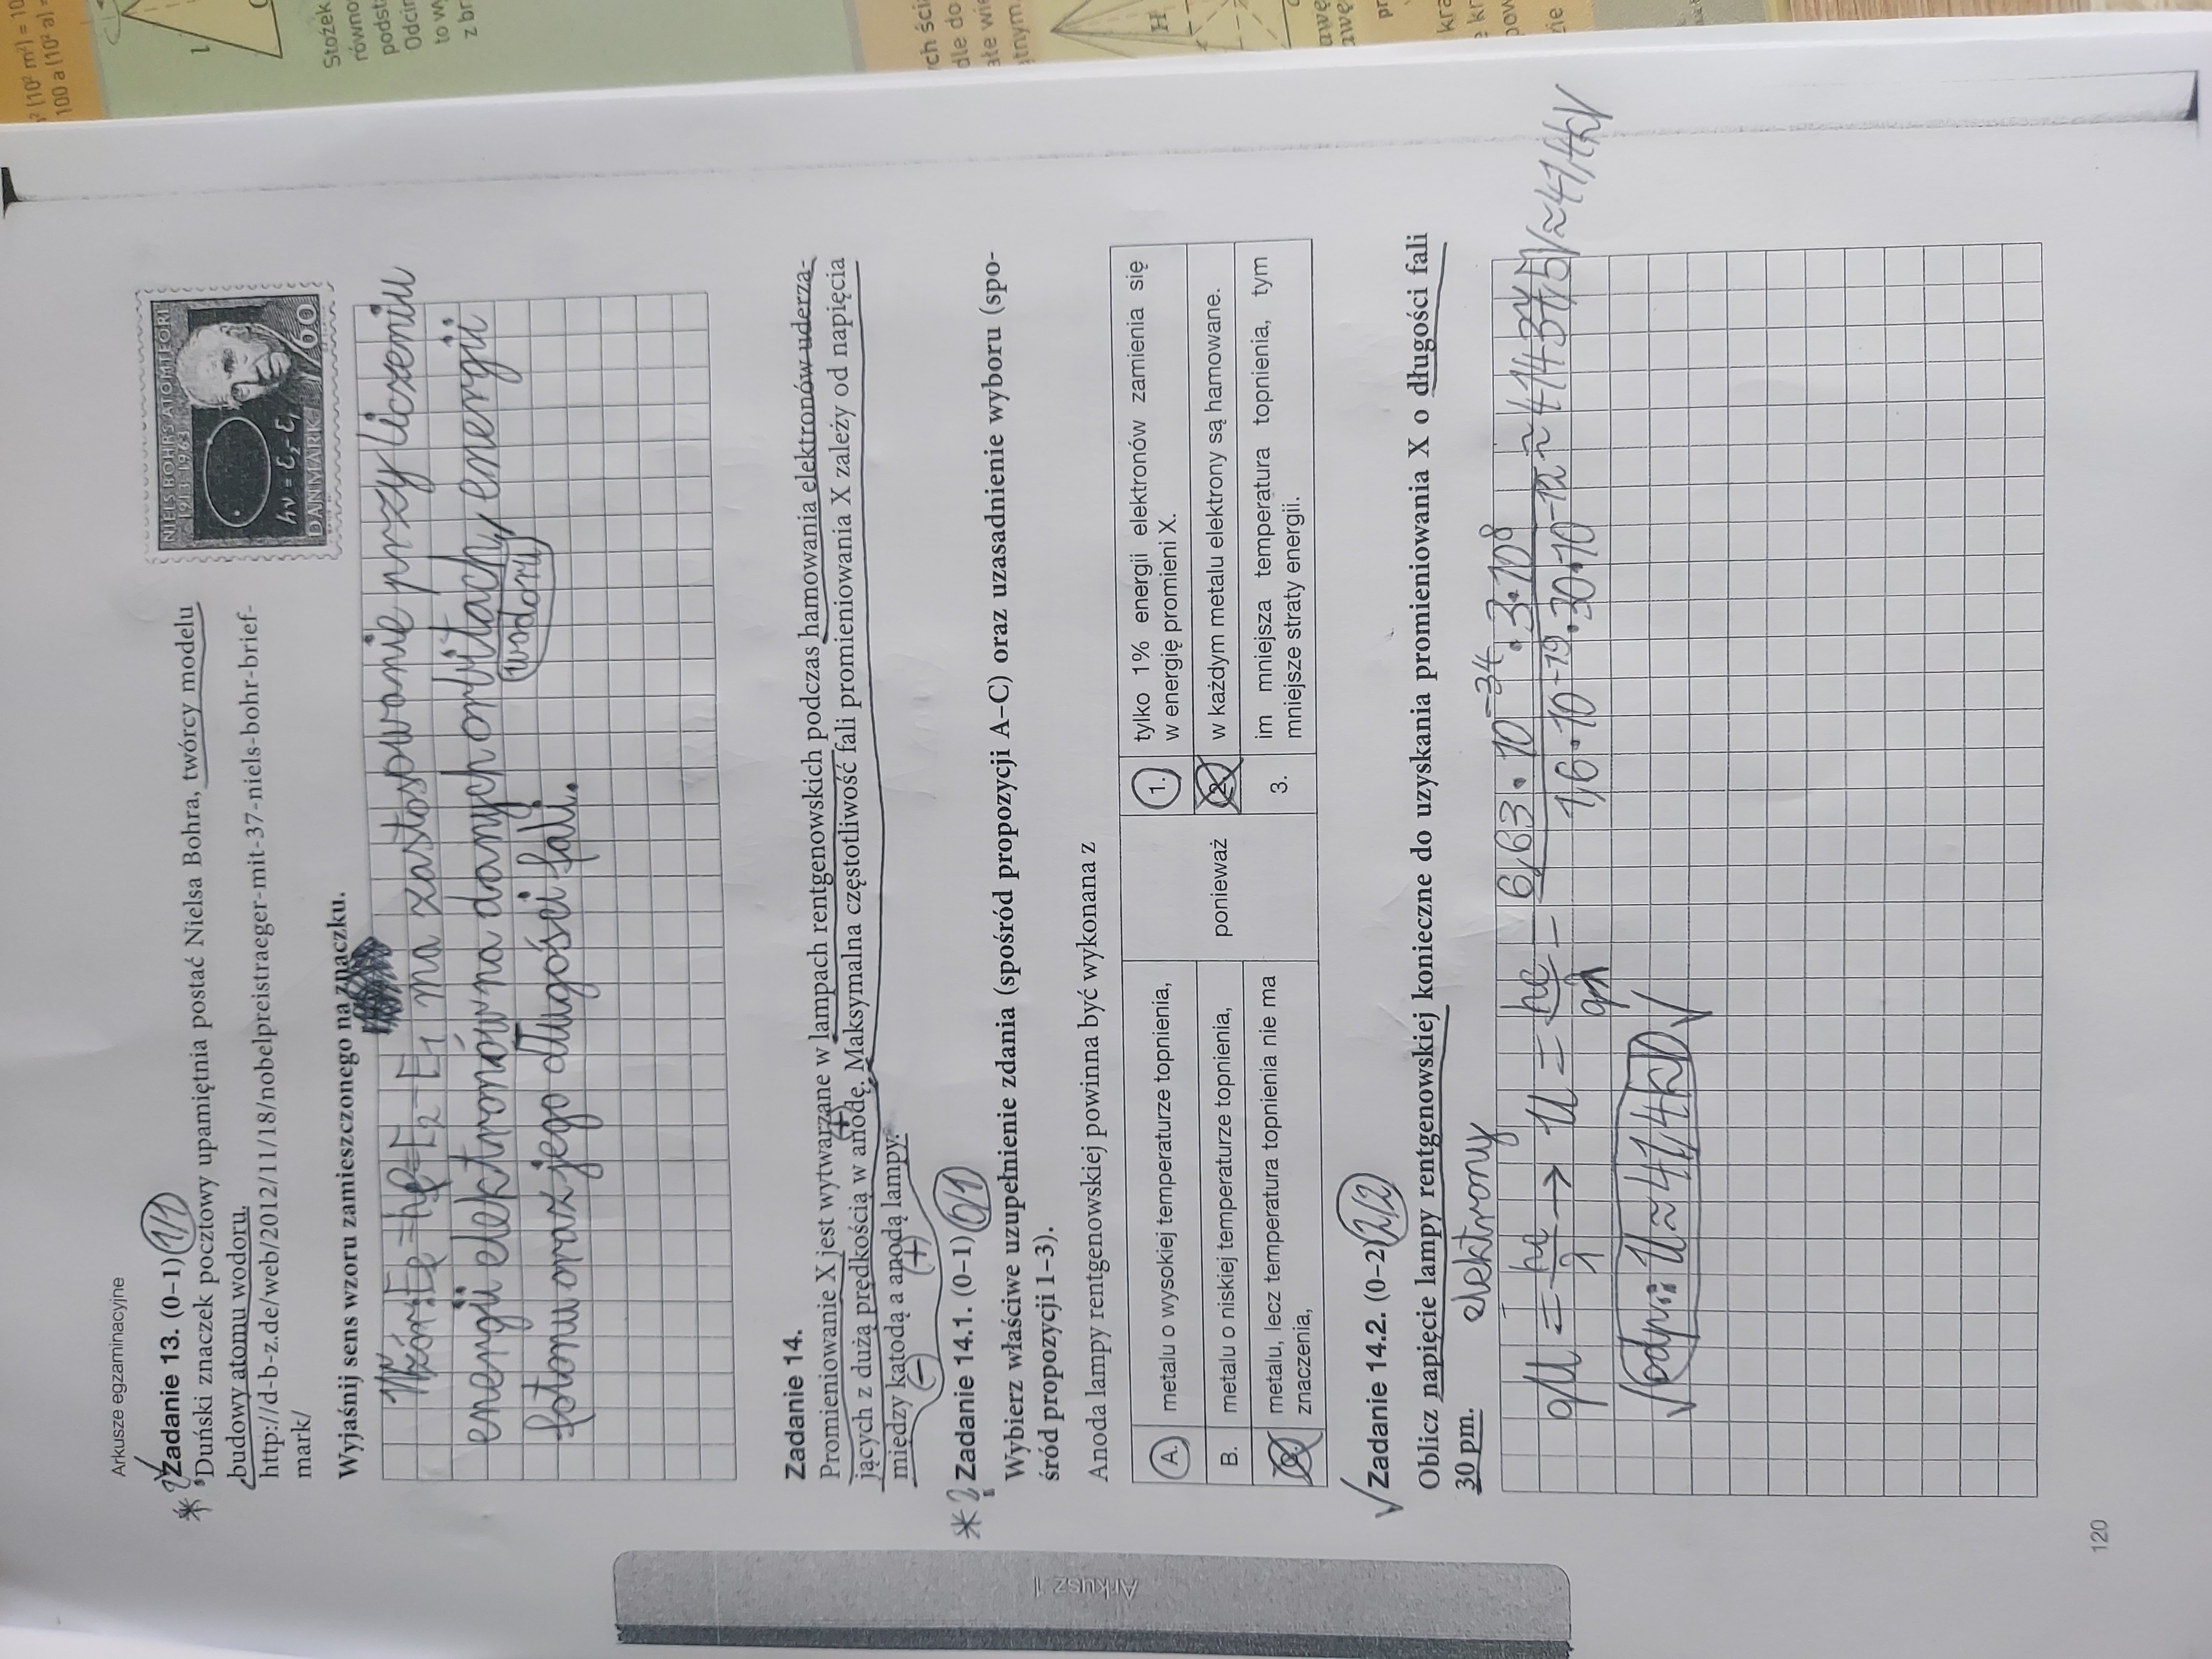 Arkusze egzaminacyjne
Zadanie 13. (0–1) 1/1
Duński znaczek pocztowy upamiętnia postać Nielsa Bohra, twórcy modelu
budowy atomu wodoru.
http://d-b-z.de/web/2012/11/18/nobelpreistraeger-mit-37-niels-bohr-brief-
mark/
NIELS BOHRS ATOMTEORI
1913-1963
hν = ε₂ - ε₁
DANMARK 60
Wyjaśnij sens wzoru zamieszczonego na znaczku.
Wzór: = E₂-E₁ ma zastosowanie przy liczeniu
energii elektronów na danych orbitach, energii
wodoru
fotonu oraz jego długości fali.
Zadanie 14.
Promieniowanie X jest wytwarzane w lampach rentgenowskich podczas hamowania elektronów uderza-
jących z dużą prędkością w anodę. Maksymalna częstotliwość fali promieniowania X zależy od napięcia
(+)
między katodą a anodą lampy.
(-) (+)
Zadanie 14.1. (0–1) 0/1
Wybierz właściwe uzupełnienie zdania (spośród propozycji A–C) oraz uzasadnienie wyboru (spo-
śród propozycji 1–3).
Anoda lampy rentgenowskiej powinna być wykonana z
A. metalu o wysokiej temperaturze topnienia,
B. metalu o niskiej temperaturze topnienia,
metalu, lecz temperatura topnienia nie ma
znaczenia,
ponieważ
1. tylko 1% energii elektronów zamienia się
w energię promieni X.
2. w każdym metalu elektrony są hamowane.
3. im mniejsza temperatura topnienia, tym
mniejsze straty energii.
Zadanie 14.2. (0–2) 2/2
Oblicz napięcie lampy rentgenowskiej konieczne do uzyskania promieniowania X o długości fali
30 pm.
elektrony
qU = hc/λ → U = hc/qλ = 6,63·10⁻³⁴·3·10⁸ / 1,6·10⁻¹⁹·30·10⁻¹² ≈ 41437,5V ≈ 41,4kV
odp.: U≈41,4kV
Arkusz 1
120
² (10² m²) = 10
100 a (10² a) =
l
Stożek
równo
podst
Odcin
to wy
z br
ych ści
dle do
ałe wi
atnym.
H